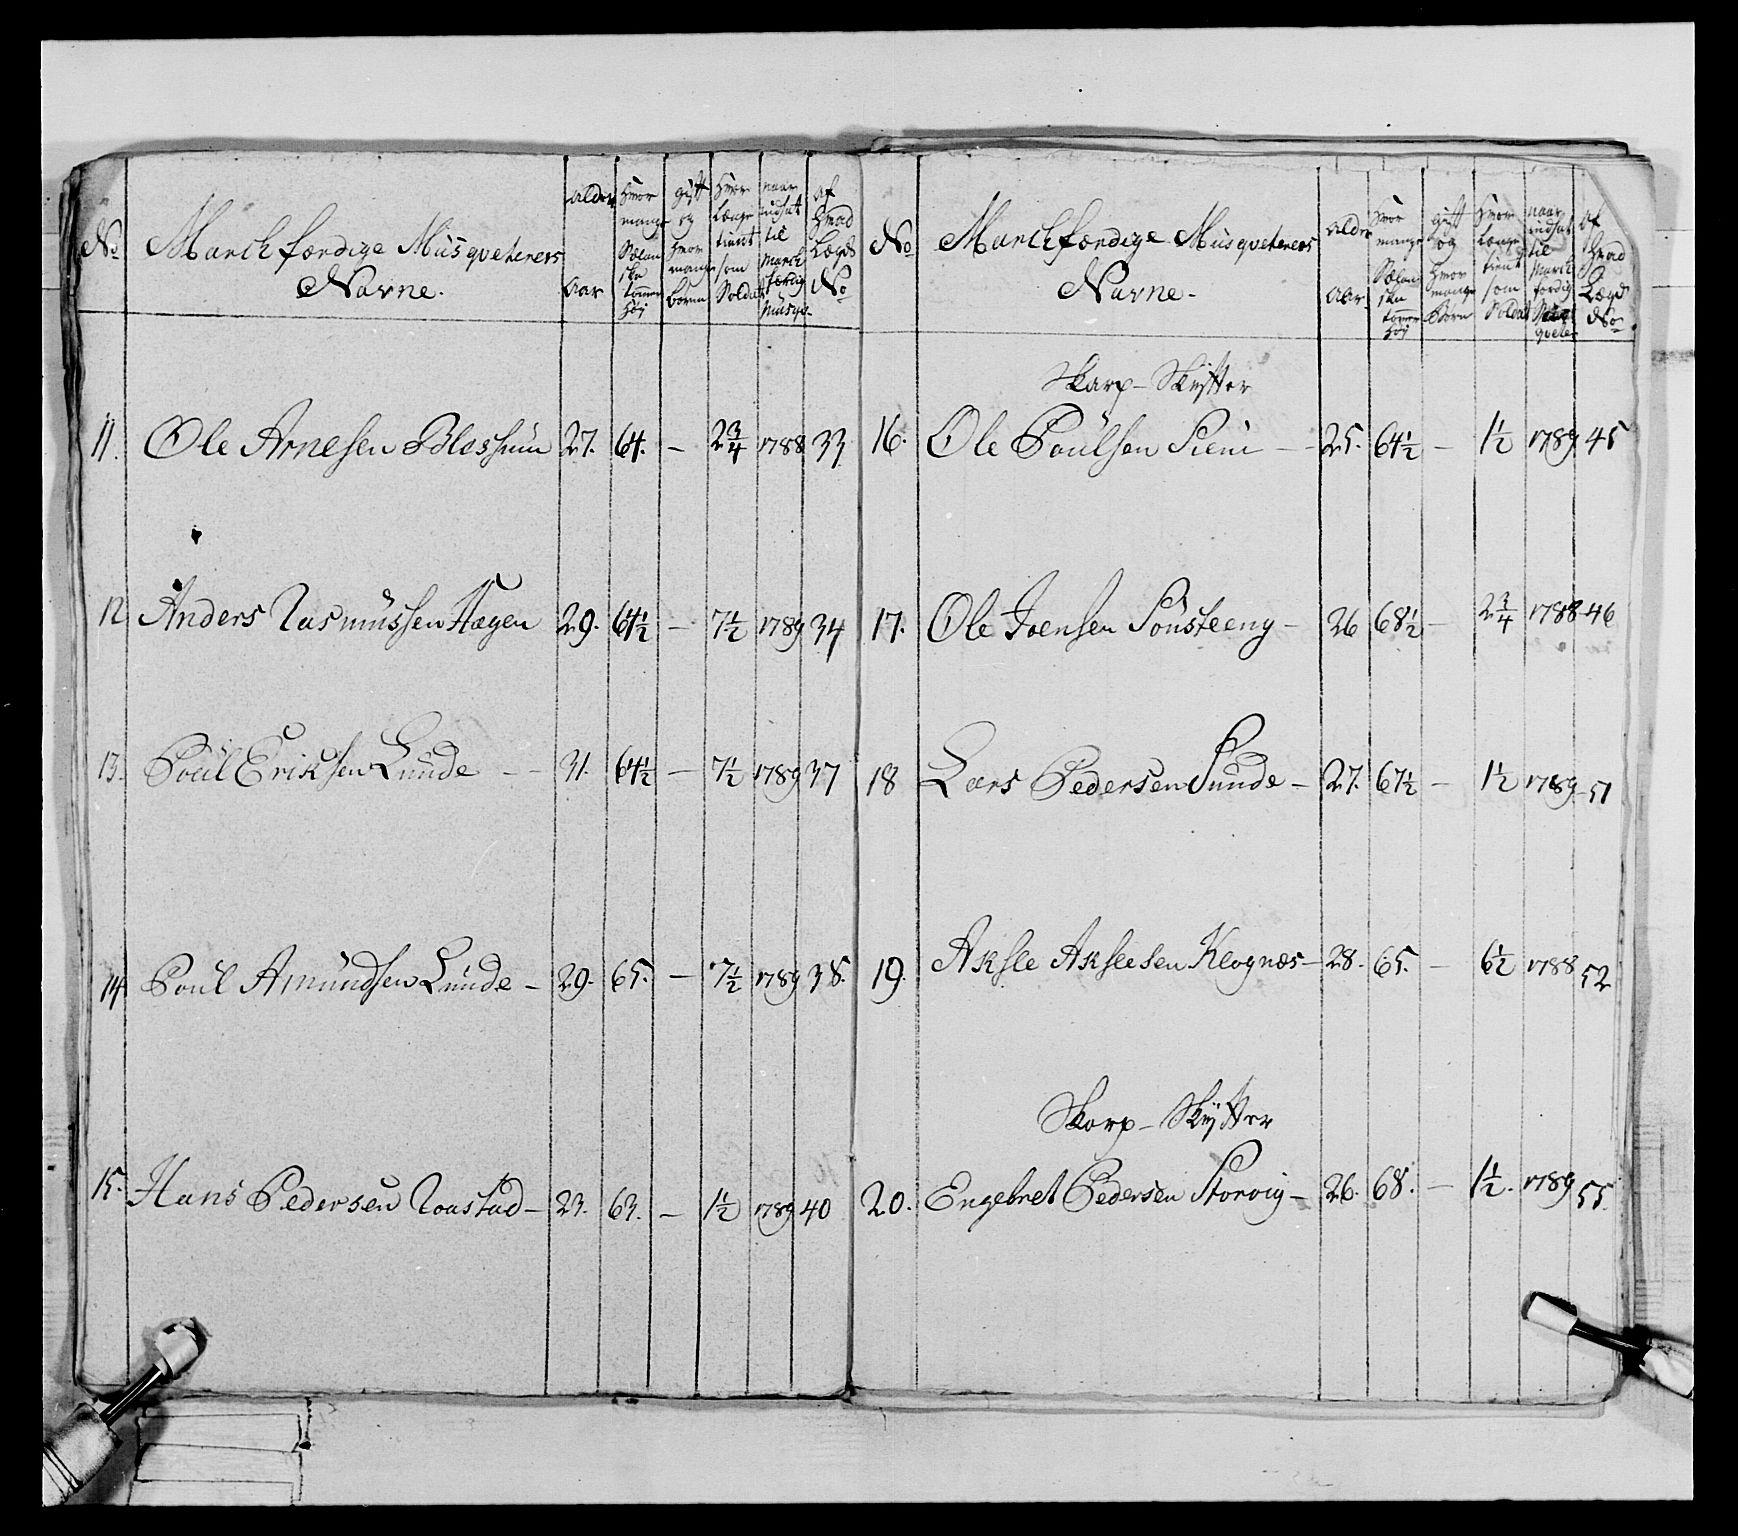 No
March færdige Musqveterers
Navne.
alder
Aar
Hvor
mange
Sælan
ske
tommer
høj
gift
og
hvor
mange
børn
Hvor
længe
tient
som
Soldat
naar
indsat
til
March
færdig
Musqv.
af
hvad
Lægds
No
11. Ole Arnesen Blessum 27. 64. - 2 3/4 1788 33
12 Anders Rasmussen Hagen 29. 64 1/2 - 7 1/2 1789 34
13. Poul Eriksen Lunde - - 31. 64 1/2 - 7 1/2 1789 37
14 Poul Amundsen Lunde - 29. 65. - 7 1/2 1789 38.
15. Hans Pedersen Roastad - 23. 63. - 1 1/2 1789 40
No
March færdige Musqveterers
Navne.
alder
Aar
Hvor
mange
Sælan
ske
tommer
høj
gift
og
hvor
mange
Børn
Hvor
længe
tient
som
Soldat
naar
indsat
til
March
færdig
Mus
qveter
af
hvad
Lægds
No
Skarp - Skytter
16. Ole Poulsen - - 25. 64 1/2 - 1 1/2 1789 45
17. Ole Joensen Sønsteeng - 26 68 1/2 - 2 3/4 1788 46
18 Lars Pedersen Sunde - 27. 67 1/2 - 1 1/2 1789 51
19. Aksle Akslesen Klognæs - 28. 65. - 6 1/2 1788 52
Skarp - Skytter
20. Engebret Pedersen Storvig - 26. 68. - 1 1/2. 1789 55.